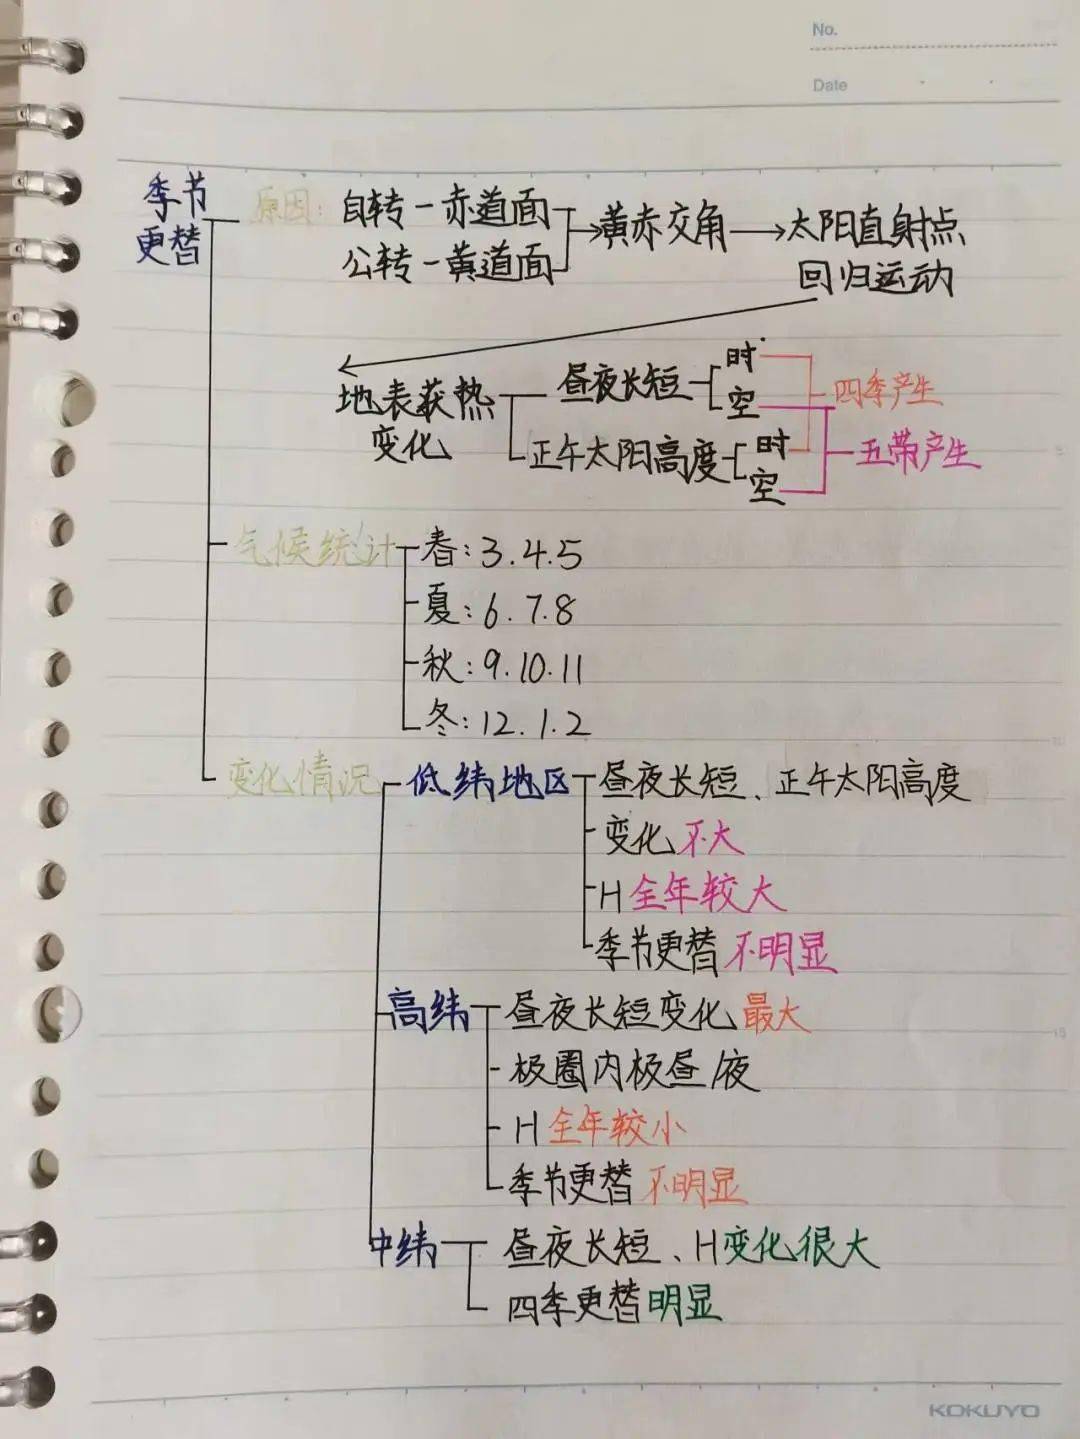 No.
Date
季节
更替
原因: 自转-赤道面
公转-黄道面
黄赤交角
太阳直射点
回归运动
地表获热
变化
昼夜长短
时
空
正午太阳高度
时
空
四季产生
五带产生
气候统计
春: 3.4.5
夏: 6.7.8
秋: 9.10.11
冬: 12.1.2
变化情况
低纬地区
昼夜长短、正午太阳高度
变化不大
H全年较大
季节更替不明显
高纬
昼夜长短变化最大
极圈内极昼/夜
H全年较小
季节更替不明显
中纬
昼夜长短、H变化很大
四季更替明显
KOKUYO